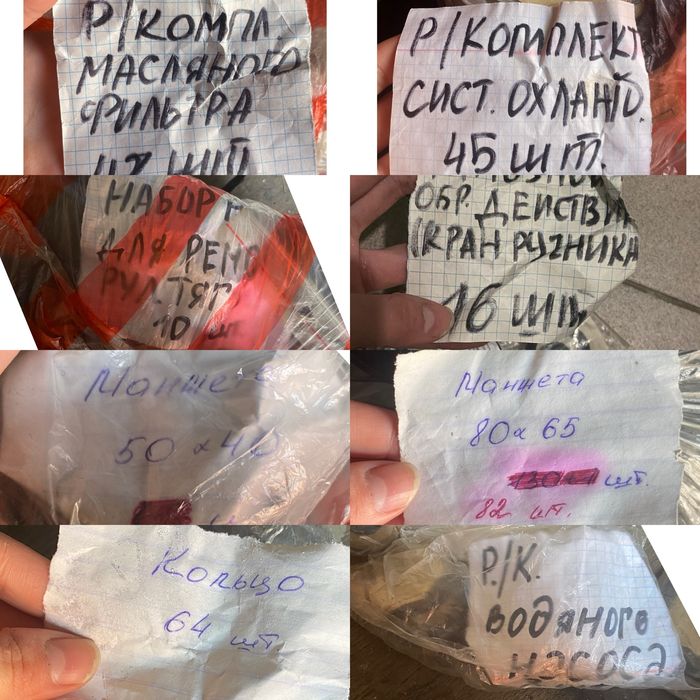 Р/КОМПЛ.
МАСЛЯНОГО
ФИЛЬТРА
42 ШТ
Р/КОМПЛЕКТ
СИСТ. ОХЛАЖД.
45 ШТ.
НАБОР
ДЛЯ РЕМ
РУЛ. ТЯГ
10 ШТ
ОБР. ДЕЙСТВИ
(КРАН РУЧНИКА
16 ШТ
Манжета
50 х 40
Манжета
80 х 65
шт.
82 шт.
Кольцо
64 шт.
Р./К.
ВОДЯНОГО
НАСОСА